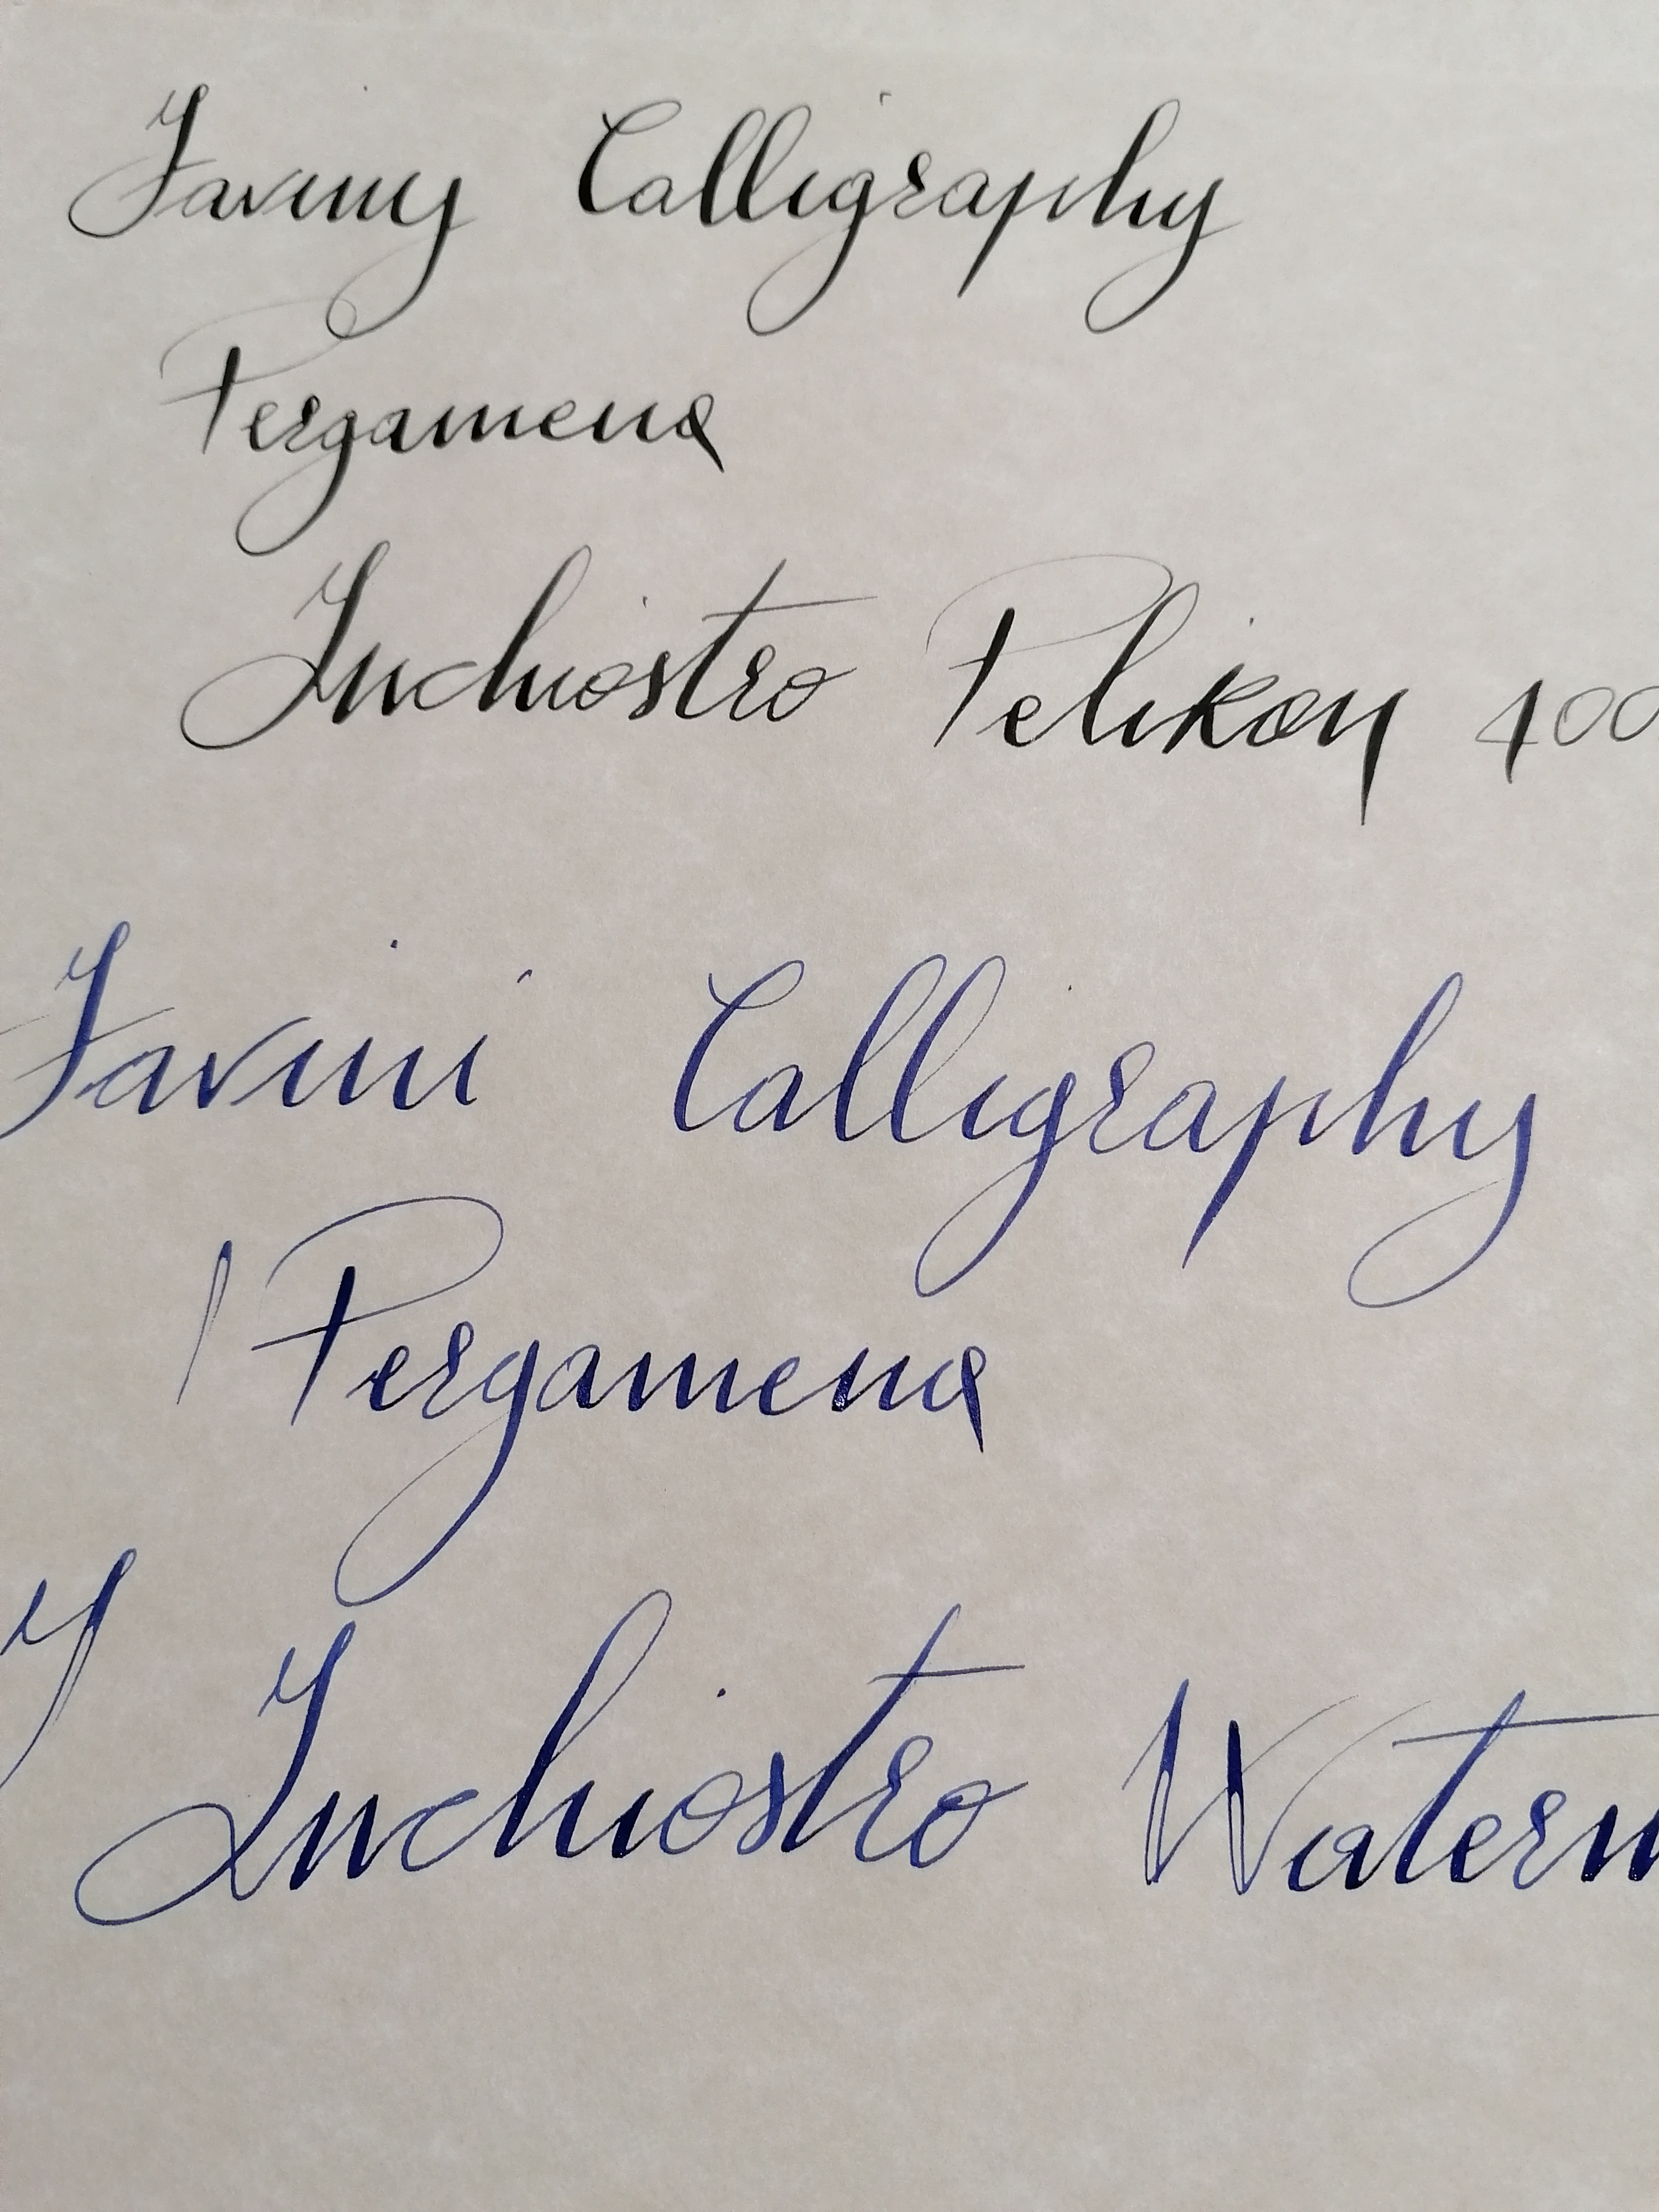 Faviny Calligraphy
Pergamena
Inchiostro Pelikan 400
Favini Calligraphy
Pergamena
Inchiostro Waterm